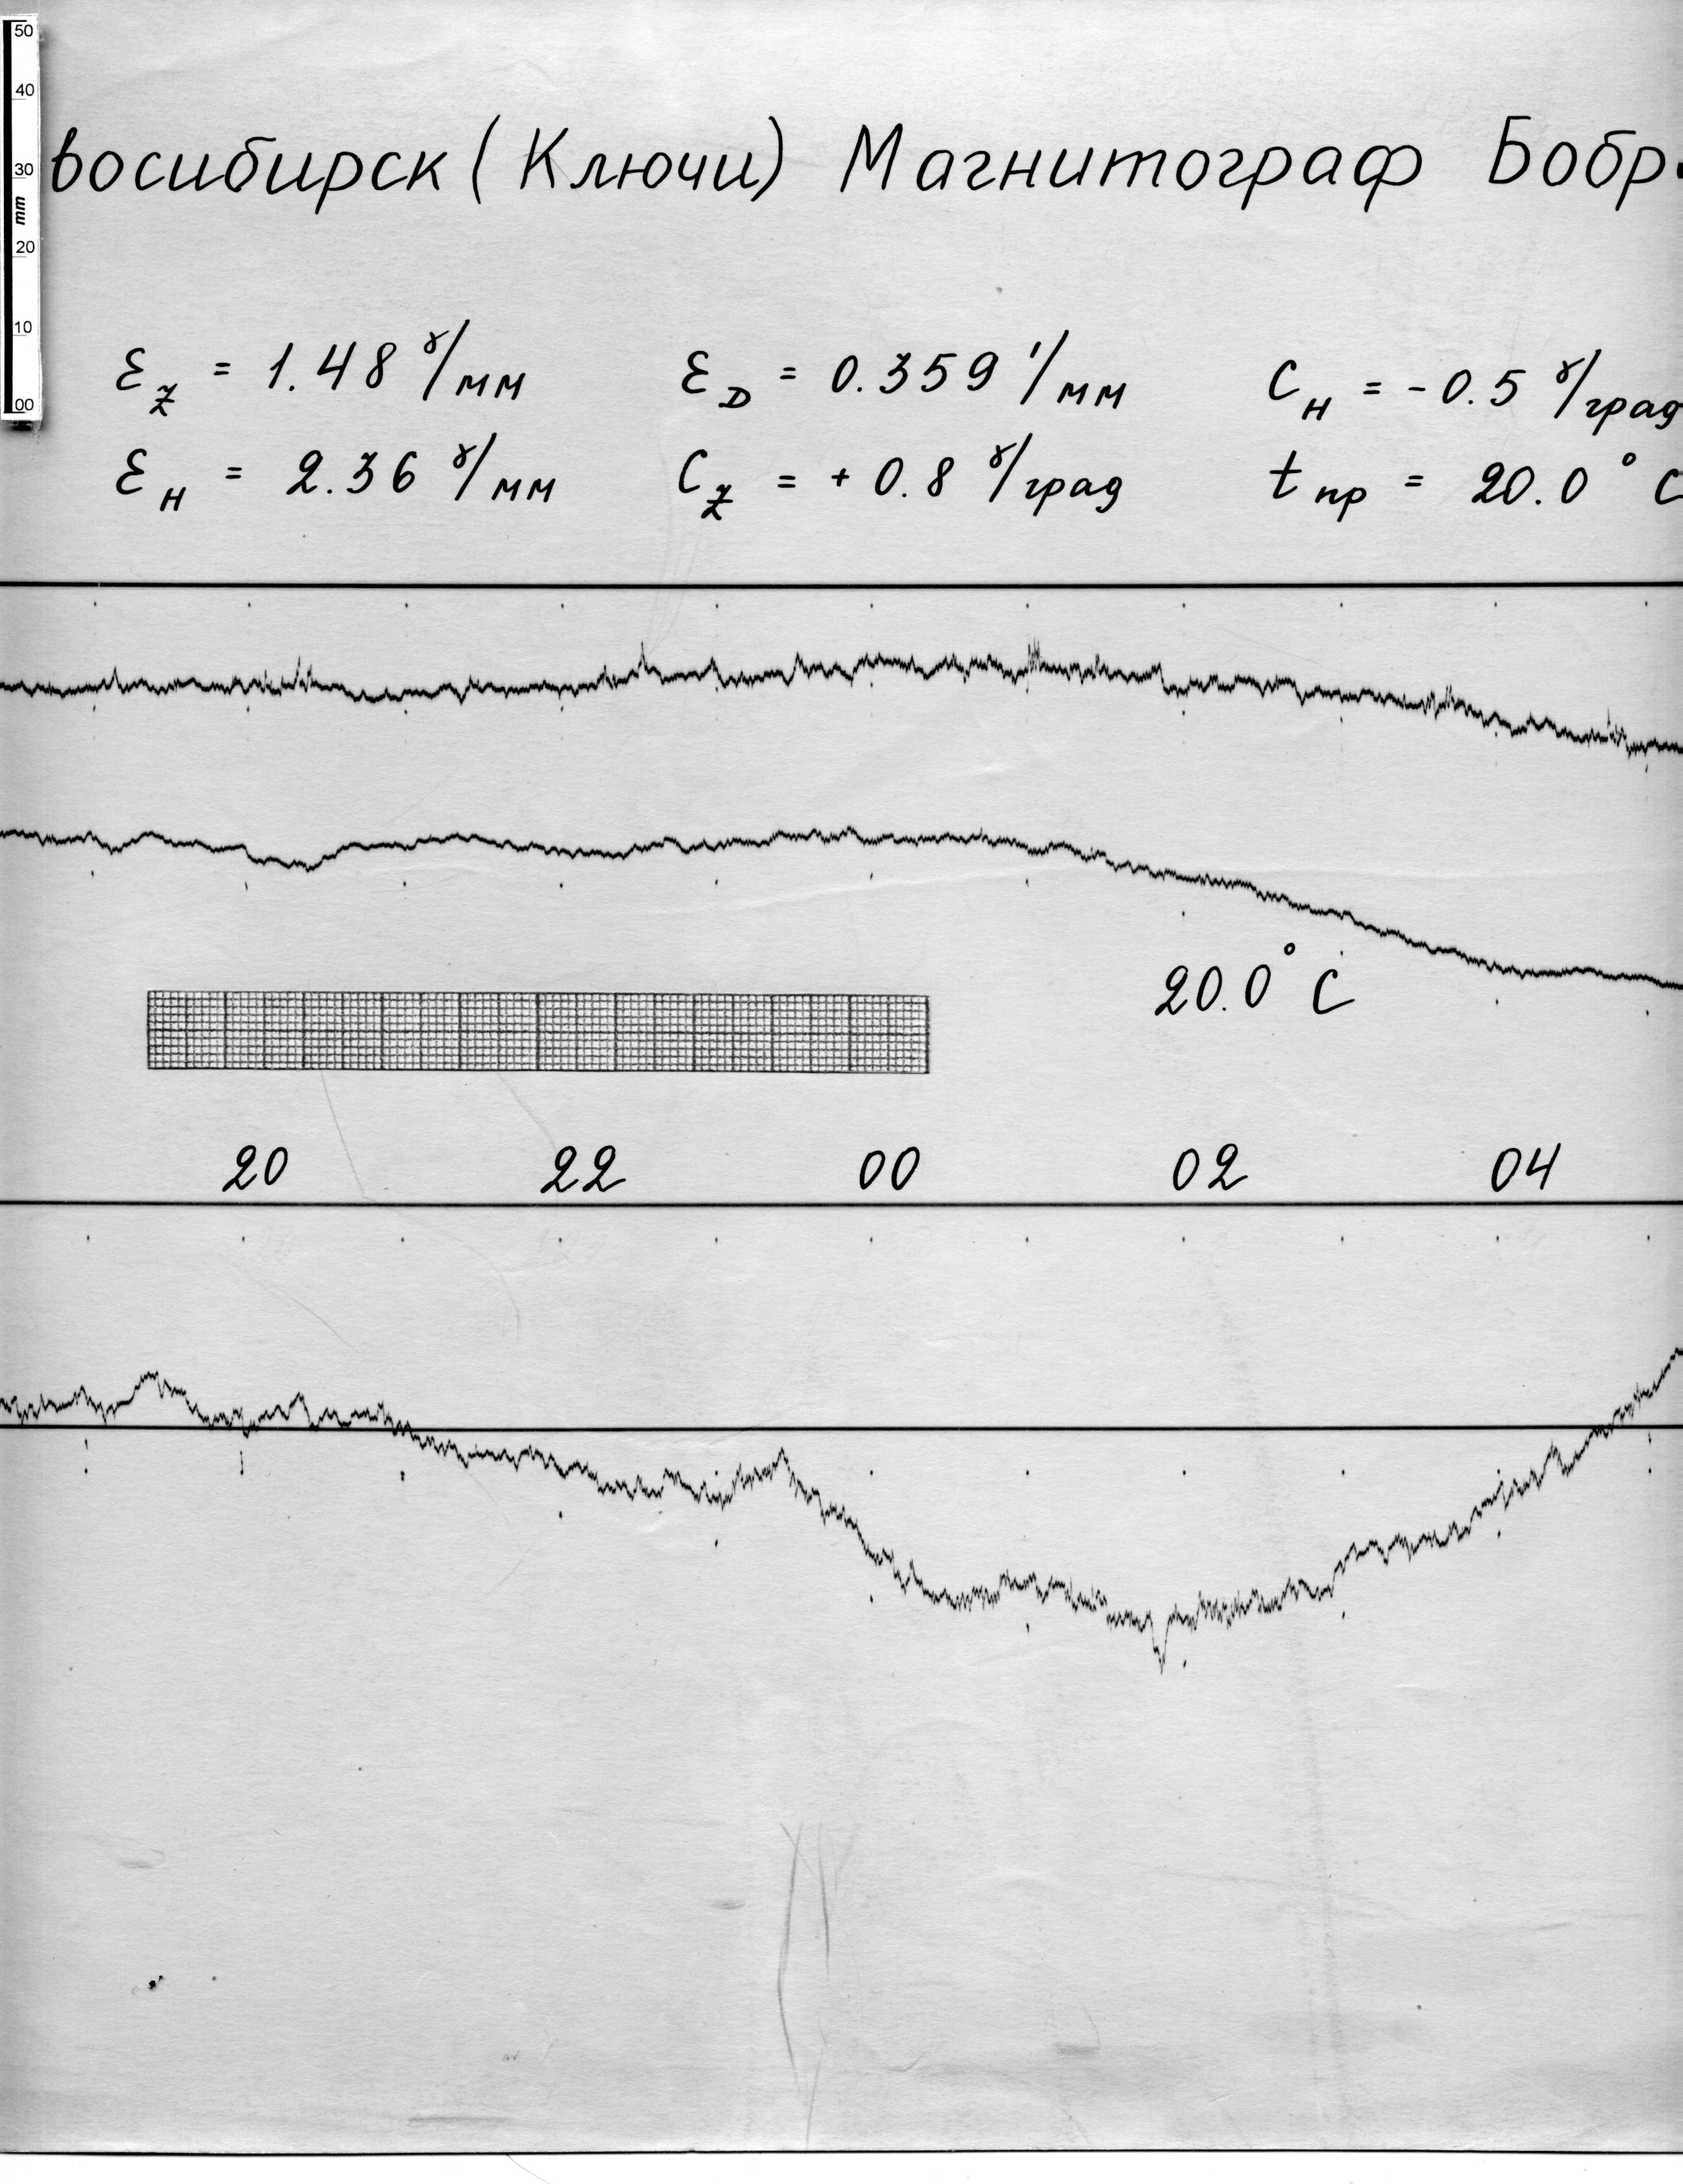 50
40
30
mm
20
10
00
восибирск (Ключи) Магнитограф Бобр
Ɛ_Z = 1.48 γ/мм Ɛ_D = 0.359 '/мм C_H = -0.5 γ/град
Ɛ_H = 2.36 γ/мм C_Z = +0.8 γ/град t пр = 20.0° C
20.0° C
20 22 00 02 04